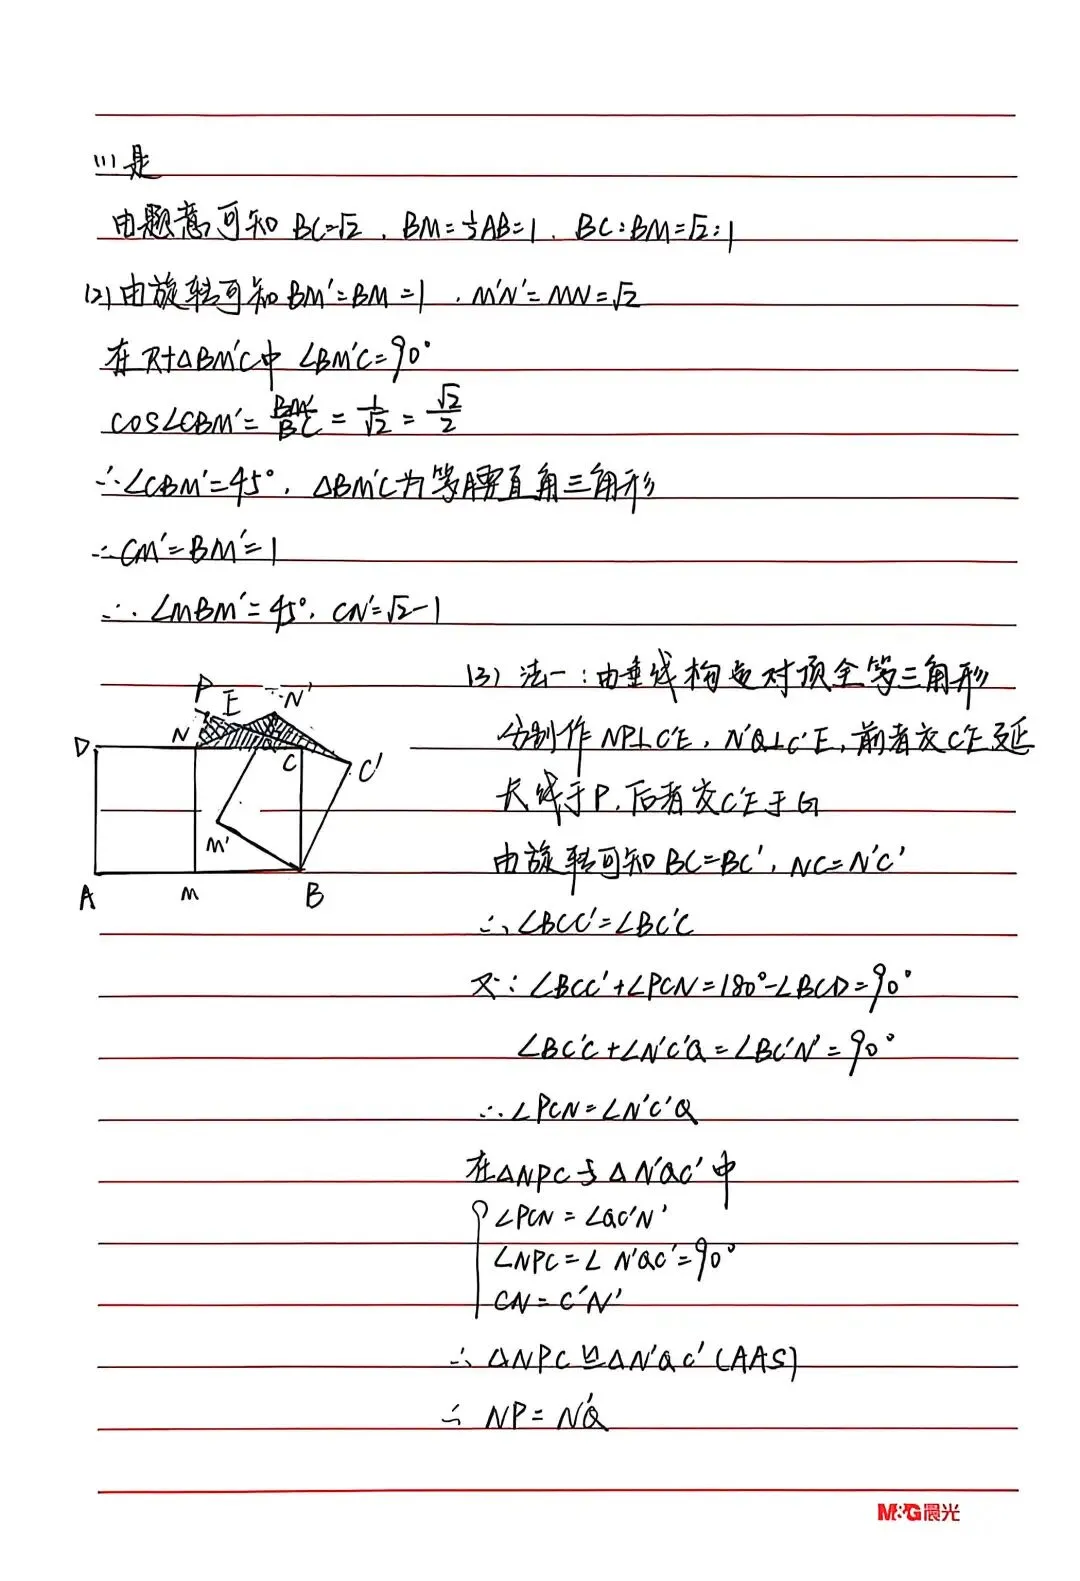 (1) 是
由题意可知 BC=√2 , BM=½AB=1 , BC:BM=√2:1
(2) 由旋转可知 BM'=BM=1 , M'N'=MN=√2
在Rt△BM'C中 ∠BM'C=90°
cos∠CBM'=BM'/BC=1/√2=√2/2
∴∠CBM'=45°, △BM'C为等腰直角三角形
∴CM'=BM'=1
∴∠MBM'=45°, CN'=√2-1
P E N'
D N C C'
M'
A M B
(3) 法一:由垂线构造对顶全等三角形
分别作NP⊥C'E, N'Q⊥C'E, 前者交C'E延
长线于P, 后者交C'E于G
由旋转可知 BC=BC', NC=N'C'
∴∠BCC'=∠BC'C
又∵∠BCC'+∠PCN=180°-∠BCD=90°
∠BC'C+∠N'C'Q=∠BC'N'=90°
∴∠PCN=∠N'C'Q
在△NPC与△N'QC'中
∠PCN=∠QC'N'
∠NPC=∠N'QC'=90°
CN=C'N'
∴△NPC≌△N'QC'(AAS)
∴NP=N'Q
M&G晨光